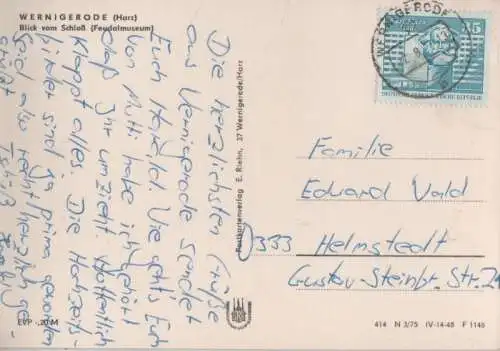 WERNIGERODE (Harz)
Blick vom Schloß (Feudalmuseum)
Die herzlichsten Grüße
aus Wernigerode sendet
Euch Harald. Wie geht's Euch
Von Mutti habe ich gehört
daß Ihr umzieht. Hoffentlich
klappt alles. Die Hochzeits-
bilder sind ja prima geworden
Seid also recht herzlich ge-
grüßt
EVP -,20 M
Postkartenverlag E. Riehn, 37 Wernigerode/Harz
WERNIGERODE
35
DEUTSCHE DEMOKRATISCHE REPUBLIK
Familie
Eduard Wald
3333 Helmstedt
Gustav-Steinbr.-Str. 2
414 N 3/75 IV-14-48 F 1146